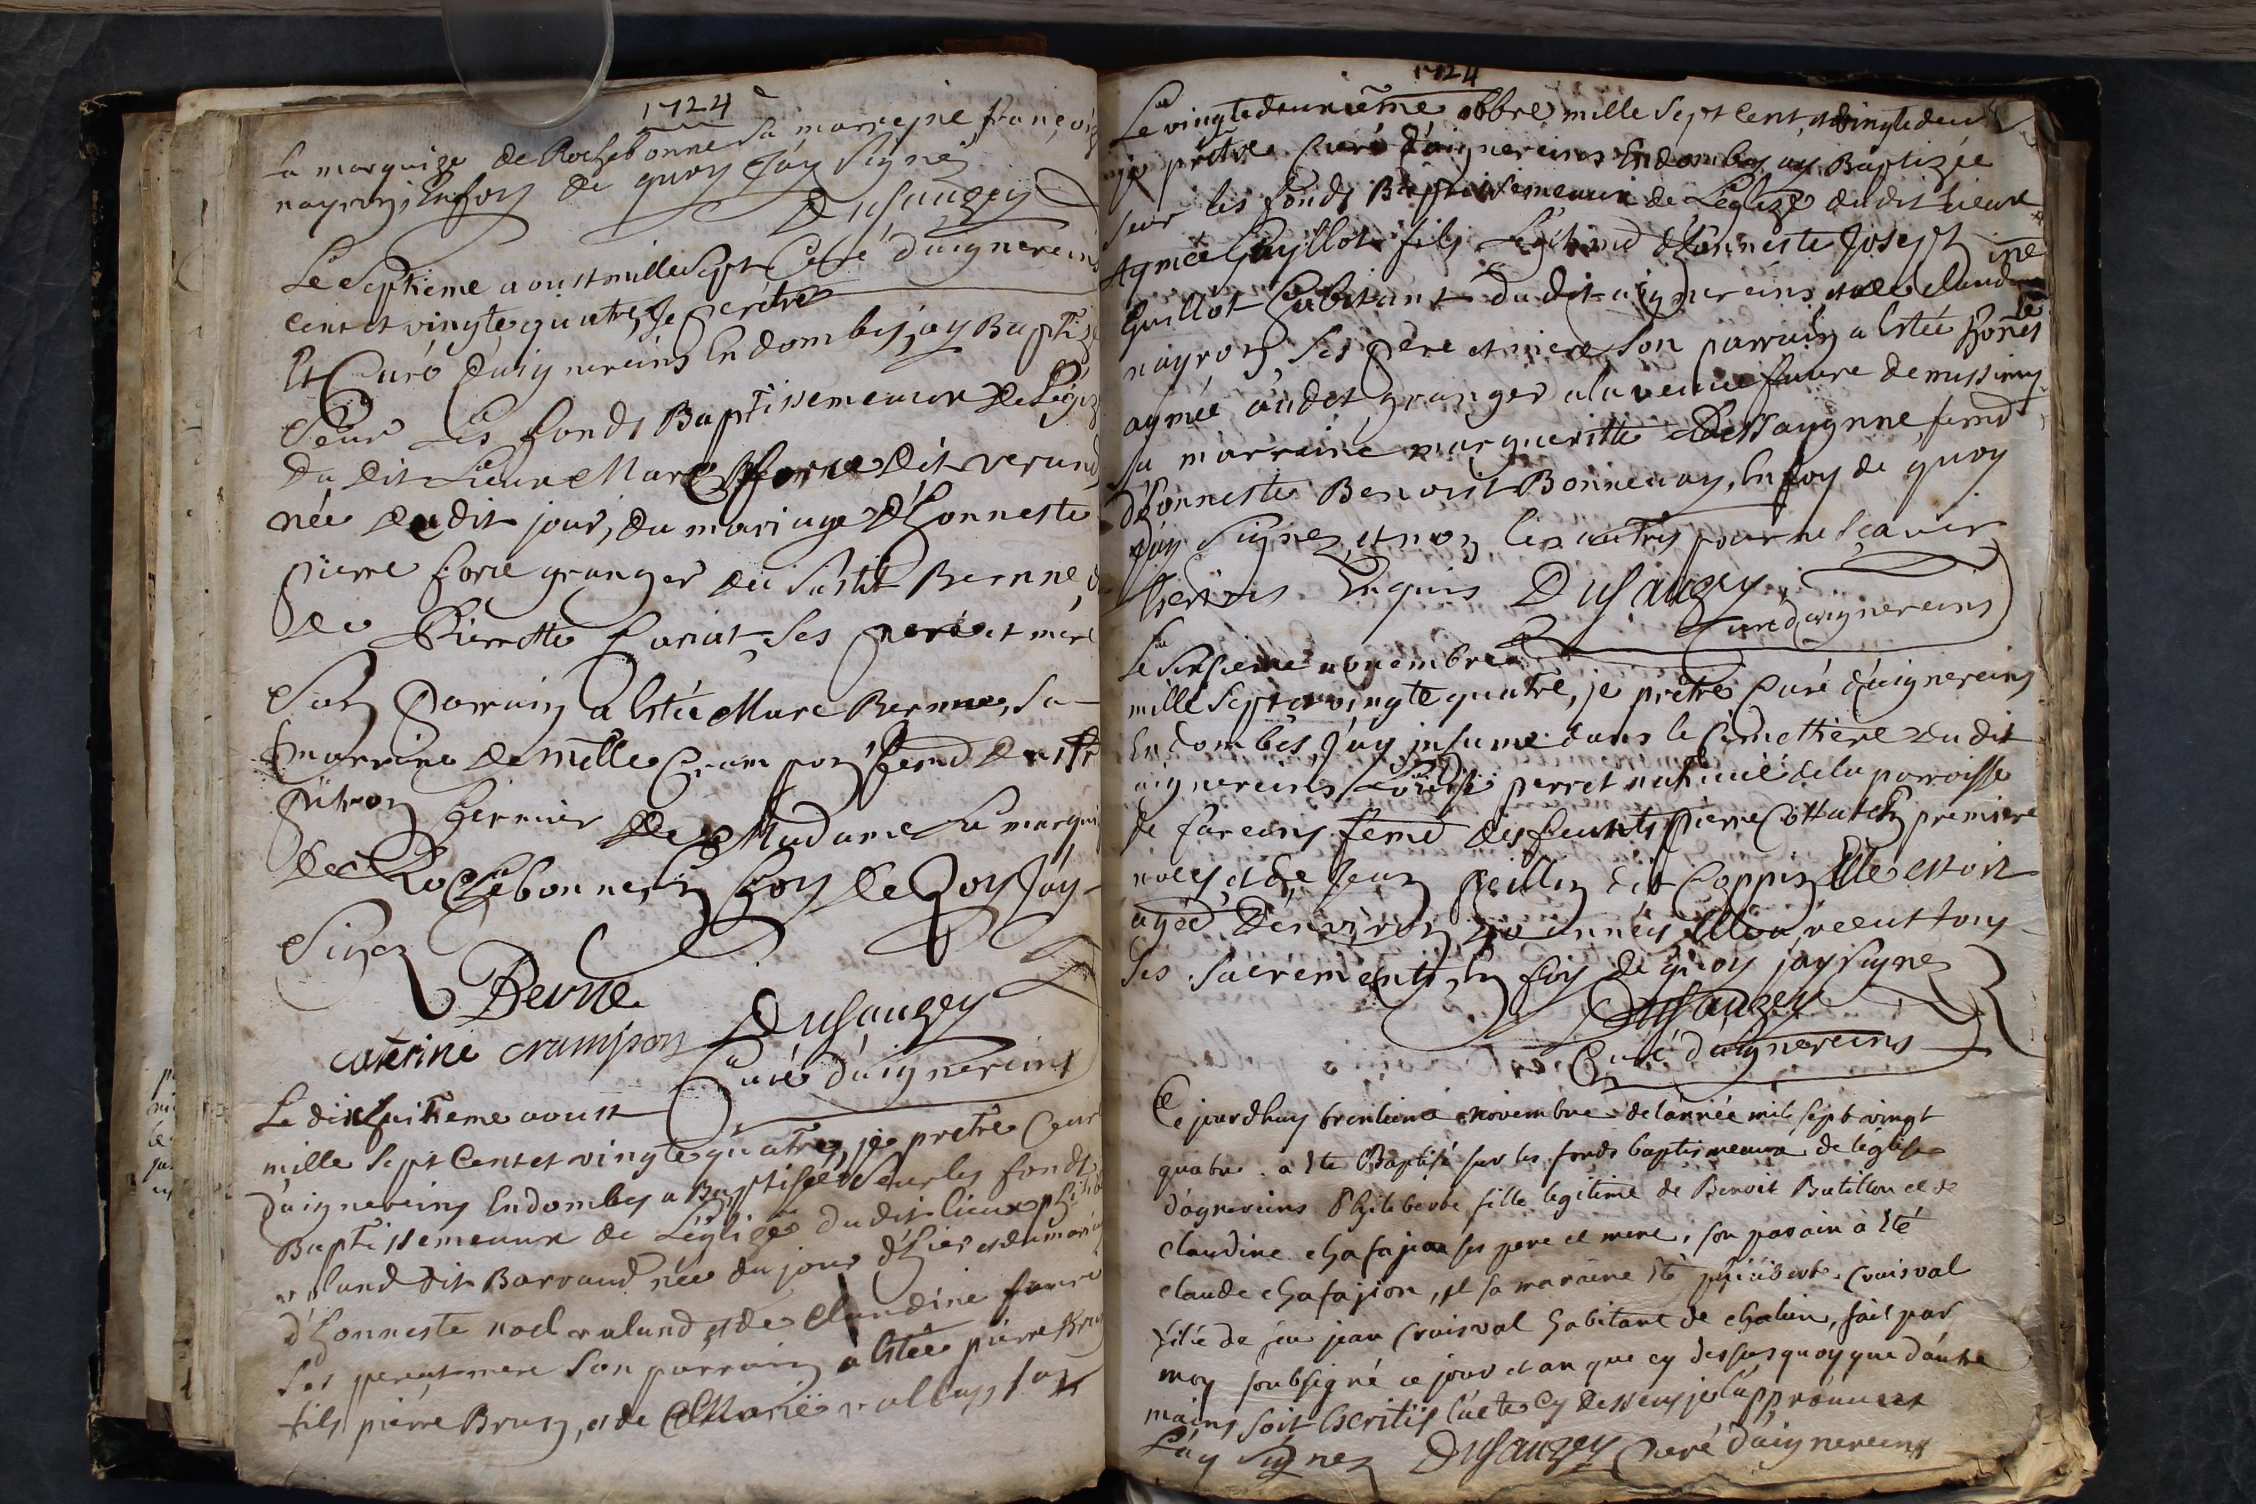 1724
La marquize de Rochebonne Sa marreine françoise
nayron, Enfoy de quoy Jay Signé
DuSauzey
Le Septieme aoust mille Sept Curé d'aignereins
Cent et vingte quatre, Je prêtre
Et Curé d'aignereins En dombes, ay Baptizé
Seur Les fonds Baptissemeaux De L'égliz
Du dit Lieux Marc forie Dit verund
née du dit jour, du mariage d'honneste
pierre forie granger du Sieur Bernne, &
De Pierrette Coriat Ses pere et mere
Son Parrain a Estée Marc Bernne, Sa
marraine Demelle Crampon feme de
pitron fermier De Madame La marqui
de Rochebonne, En Foy De Quoy J'ay
Signez
Berne
caterine crampon DuSauzey
Curé d'aignereins
Le dixhuitieme aoust
mille Sept Cent et vingte quatre, je pretre Curé
d'aignereins Endombes a Baptisée Seur les fonds
Baptissemeaux de L'eglize du dit lieux
dit Barraud née du jour d'hier et du mariage
d'honneste noel et de Claudine faure
Ses pere et mere Son parrain a Estée pierre Brun
fils pierre Brun, et de Marie
1724
Le vingtedeuxième obbre mille Sept Cent, et vingtedeux
je prêtre Curé d'aignereins Endombes ay Baptizée
Seur les fonds Baptissemeaux de L'eglize du dit Lieux
Aymée Guyllot fils Legitime d'honneste Joseph
Guillot habitant du dit aignereins, et de Claudine
nayron, Ses pere et mere, Son parrain a Estée honeste
aymée audet granger a la veuve faure de missimy
Sa marraine margueritte Dessaugnne feme
d'honneste Benoist Bonnevay, En foy de quoy
J'ay Signez, et non les autres pour ne Sçavoir
Enquis DuSauzey
Curé d'aignereins
Le novembre
mille Sept et vingte quatre, je prêtre Curé d'aignereins
En dombes, J'ay inhumé dans le Cimettière du dit
aignereins Louise perret natifue de la parroisse
de fareins feme des feunts pierre Cottaten premiere
noces, et de Jean peillin dit Coppin, Elle estoit
agée D'environ années, Elle a receut tous
Ses Sacrements, En foy De quoy jay Signez
DuSauzey
Curé d'aignereins
Ce jourdhuy trentieme novembre de l'année mil sept vingt
quatre a Ete Baptisé sur les fonds baptismeaux de leglise
d'agnereins Philiberte fille legitime de Benoit Batillon et de
claudine chafajon ses pere et mere, son parain à Eté
claude chafajion, et sa maraine Eté philiberte Croisval
fille de feu jean Croisval habitant de chalein, fait par
moy soubsigné ce jour et an que cy dessus quoy que d'autre
mains soit Escritis l'acte Cy Dessus je l'approuve et
L'ay Signez DuSauzey Curé d'aignereins